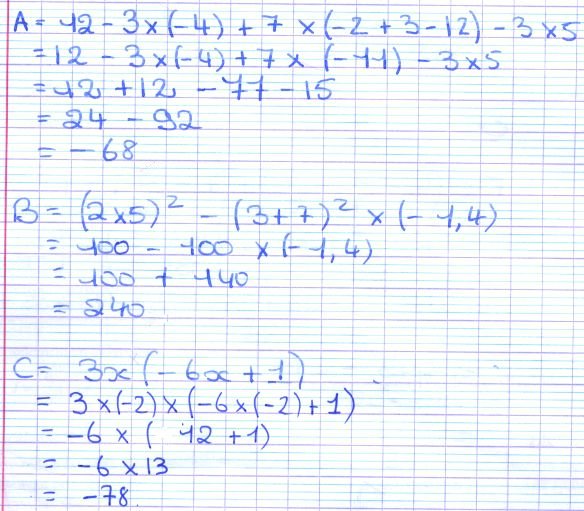 A = 12 - 3×(-4) + 7 ×(-2 + 3 - 12) - 3×5
= 12 - 3×(-4) + 7 × (-11) - 3×5
= 12 + 12 - 77 - 15
= 24 - 92
= - 68
B = (2×5)² - (3+7)² × (- 1,4)
= 100 - 100 × (- 1,4)
= 100 + 140
= 240
C = 3x(-6x + 1)
= 3×(-2)×(-6×(-2)+1)
= -6 × ( 12 + 1)
= -6 × 13
= -78